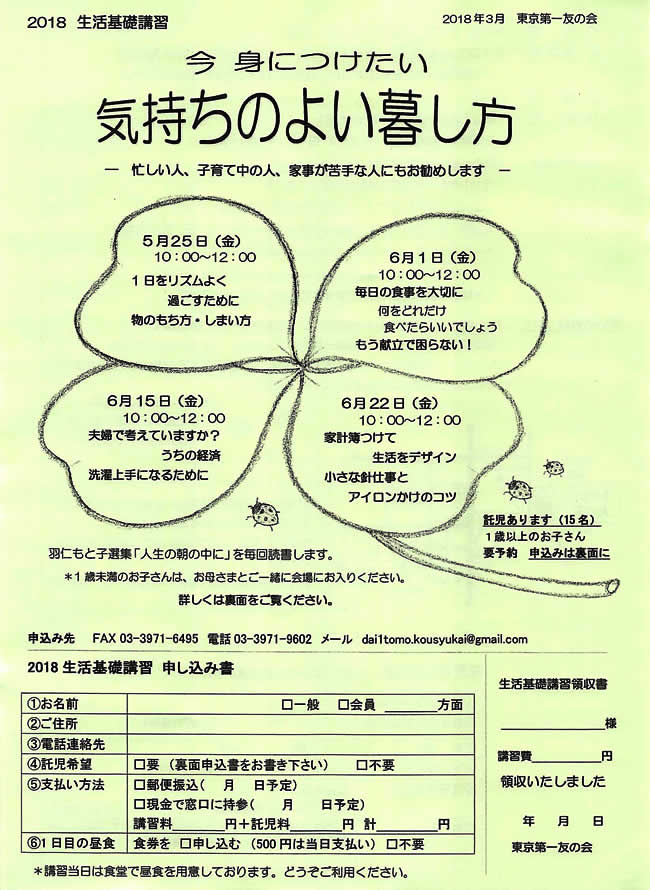 2018 生活基礎講習
2018年3月 東京第一友の会
今 身につけたい
気持ちのよい暮し方
― 忙しい人、子育て中の人、家事が苦手な人にもお勧めします ―
5月25日（金）
10：00～12：00
1日をリズムよく
過ごすために
物のもち方・しまい方
6月1日（金）
10：00～12：00
毎日の食事を大切に
何をどれだけ
食べたらいいでしょう
もう献立で困らない！
6月15日（金）
10：00～12：00
夫婦で考えていますか？
うちの経済
洗濯上手になるために
6月22日（金）
10：00～12：00
家計簿つけて
生活をデザイン
小さな針仕事と
アイロンかけのコツ
託児あります（15名）
1歳以上のお子さん
要予約 申込みは裏面に
羽仁もと子選集「人生の朝の中に」を毎回読書します。
＊1歳未満のお子さんは、お母さまとご一緒に会場にお入りください。
詳しくは裏面をご覧ください。
申込み先 FAX 03-3971-6495 電話 03-3971-9602 メール dai1tomo.kousyukai@gmail.com
2018 生活基礎講習 申し込み書
①お名前 □一般 □会員 ________方面
②ご住所
③電話連絡先
④託児希望 □要（裏面申込書をお書き下さい） □不要
⑤支払い方法 □郵便振込（ 月 日予定）
□現金で窓口に持参（ 月 日予定）
講習料________円＋託児料________円 計________円
⑥1日目の昼食 食券を □申し込む（500円は当日支払い）□不要
＊講習当日は食堂で昼食を用意しております。どうぞご利用ください。
生活基礎講習領収書
________様
講習費________円
領収いたしました
年 月 日
東京第一友の会